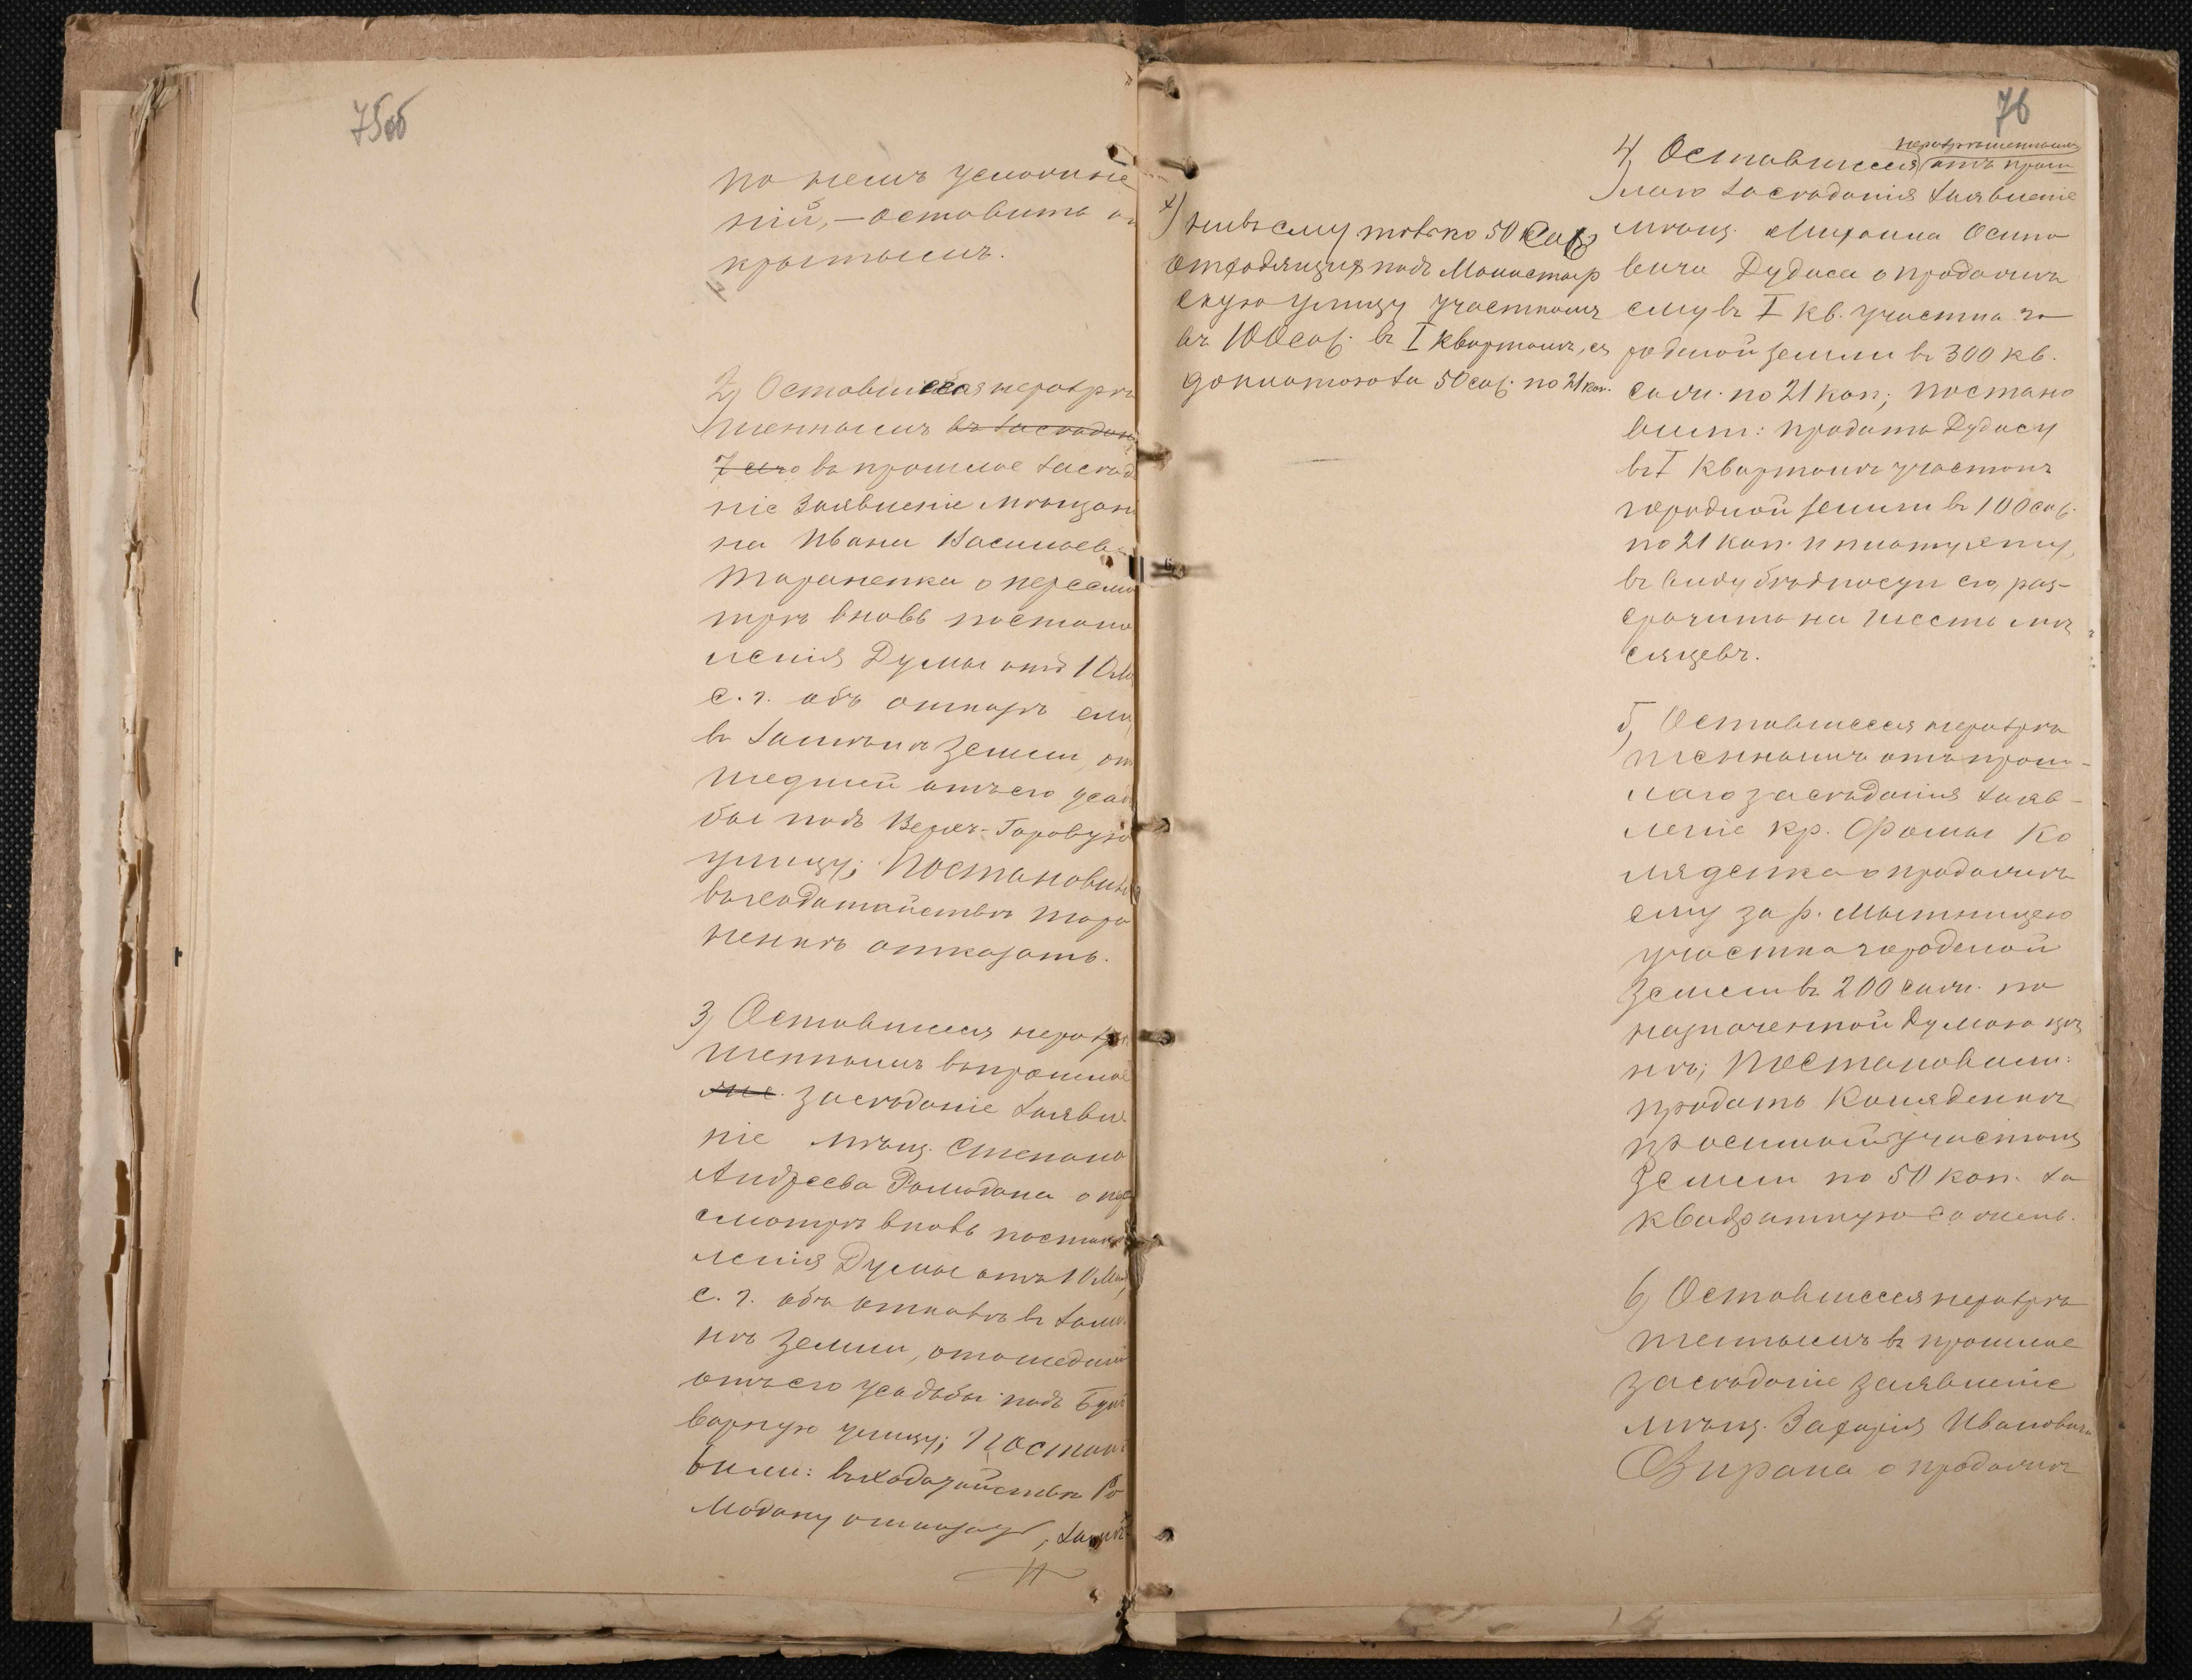 75об
по немъ условіи не
ній, — оставить от
крытымъ.
2) Оставшееся неразрѣ
шеннымъ въ засѣдан
7 сего въ прошлое засѣда
ніе Заявленіе мѣщани
на Ивана Васильева
Тараненка о пересмо
трѣ вновь постано
ленія Думы отъ 10 М
с. г. объ отказѣ ему
въ замѣнѣ земли, от
шедшей отъ его усадь
бы подъ Верхн-Горовую
улицу; Постановили
въ ходатайствѣ Тара
ненкѣ отказать.
3) Оставшееся неразрѣ
шеннымъ въ прошлое
засѣданіе заявле
ніе мѣщ. Степана
Андреева Ромодана о пере
смотрѣ вновь постанов
ленія Думы отъ 10 Мая
с. г. объ отказѣ въ замѣ
нѣ земли, отошедшей
отъ его усадьбы подъ Буль
варную улицу; Постано
вили: въ ходатайствѣ Ро
модану отказать, замѣ
76
х)
нивъ ему только 50 саж
отходящихъ подъ Монастыр
скую улицу участкомъ
въ 100 саж. въ I кварталѣ, съ
доплатою за 50 саж. по 21 коп.
неразрѣшеннымъ
4) Оставшееся отъ прош
лаго засѣданія заявленіе
мѣщ. Михаила Осипо
вича Дудаса о продажѣ
ему въ I кв. участка го
родской земли въ 300 кв.
саж. по 21 коп; постано
вили: продать Дудасу
въ I кварталѣ участокъ
городской земли въ 100 саж.
по 21 коп. и плату ему,
въ виду бѣдности его, раз-
срочить на шесть мѣ
сяцевъ.
5) Оставшееся неразрѣ
шеннымъ отъ прош-
лаго засѣданія заяв-
леніе кр. Фомы Ко
ляденка о продажѣ
ему за р. Мытницею
участка городской
земли въ 200 саж. по
назначенной Думою цѣ
нѣ; Постановили:
продать Коляденкѣ
просимый участокъ
земли по 50 коп. за
квадратную сажень.
6) Оставшееся неразрѣ
шеннымъ въ прошлое
засѣданіе заявленіе
мѣщ. Захарія Ивановича
Свирана о продажѣ